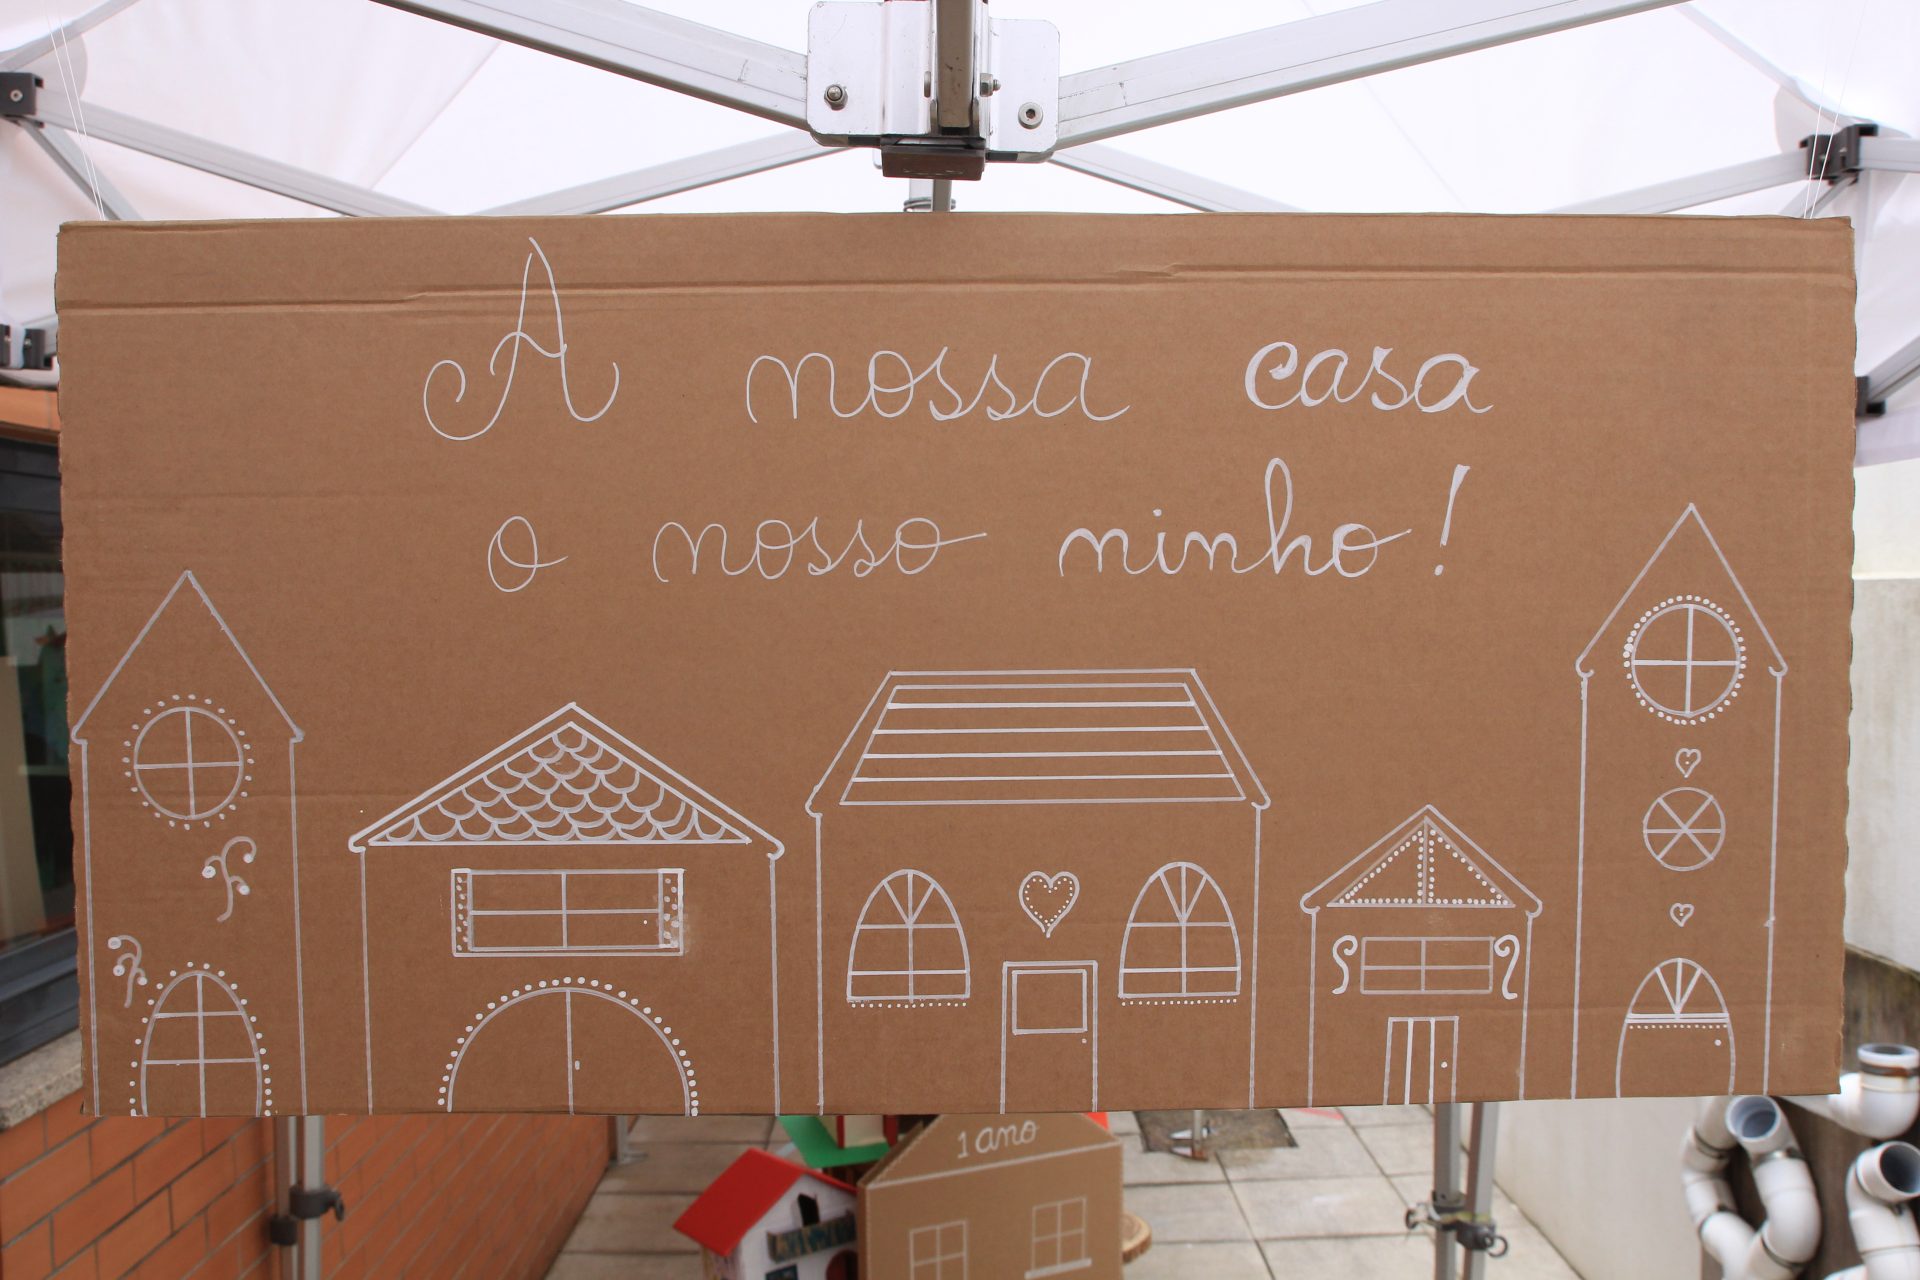 A nossa casa
o nosso ninho!
1 ano